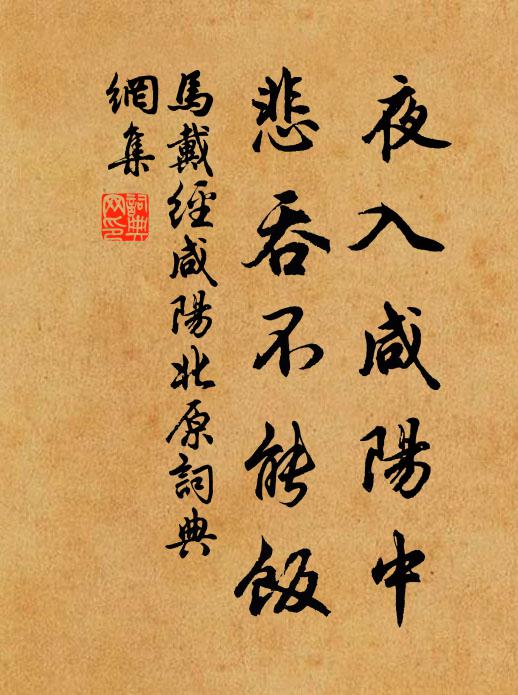 夜入咸陽中
悲吞不能飯
馬戴經咸陽北原詞典
網集
詞典
网印